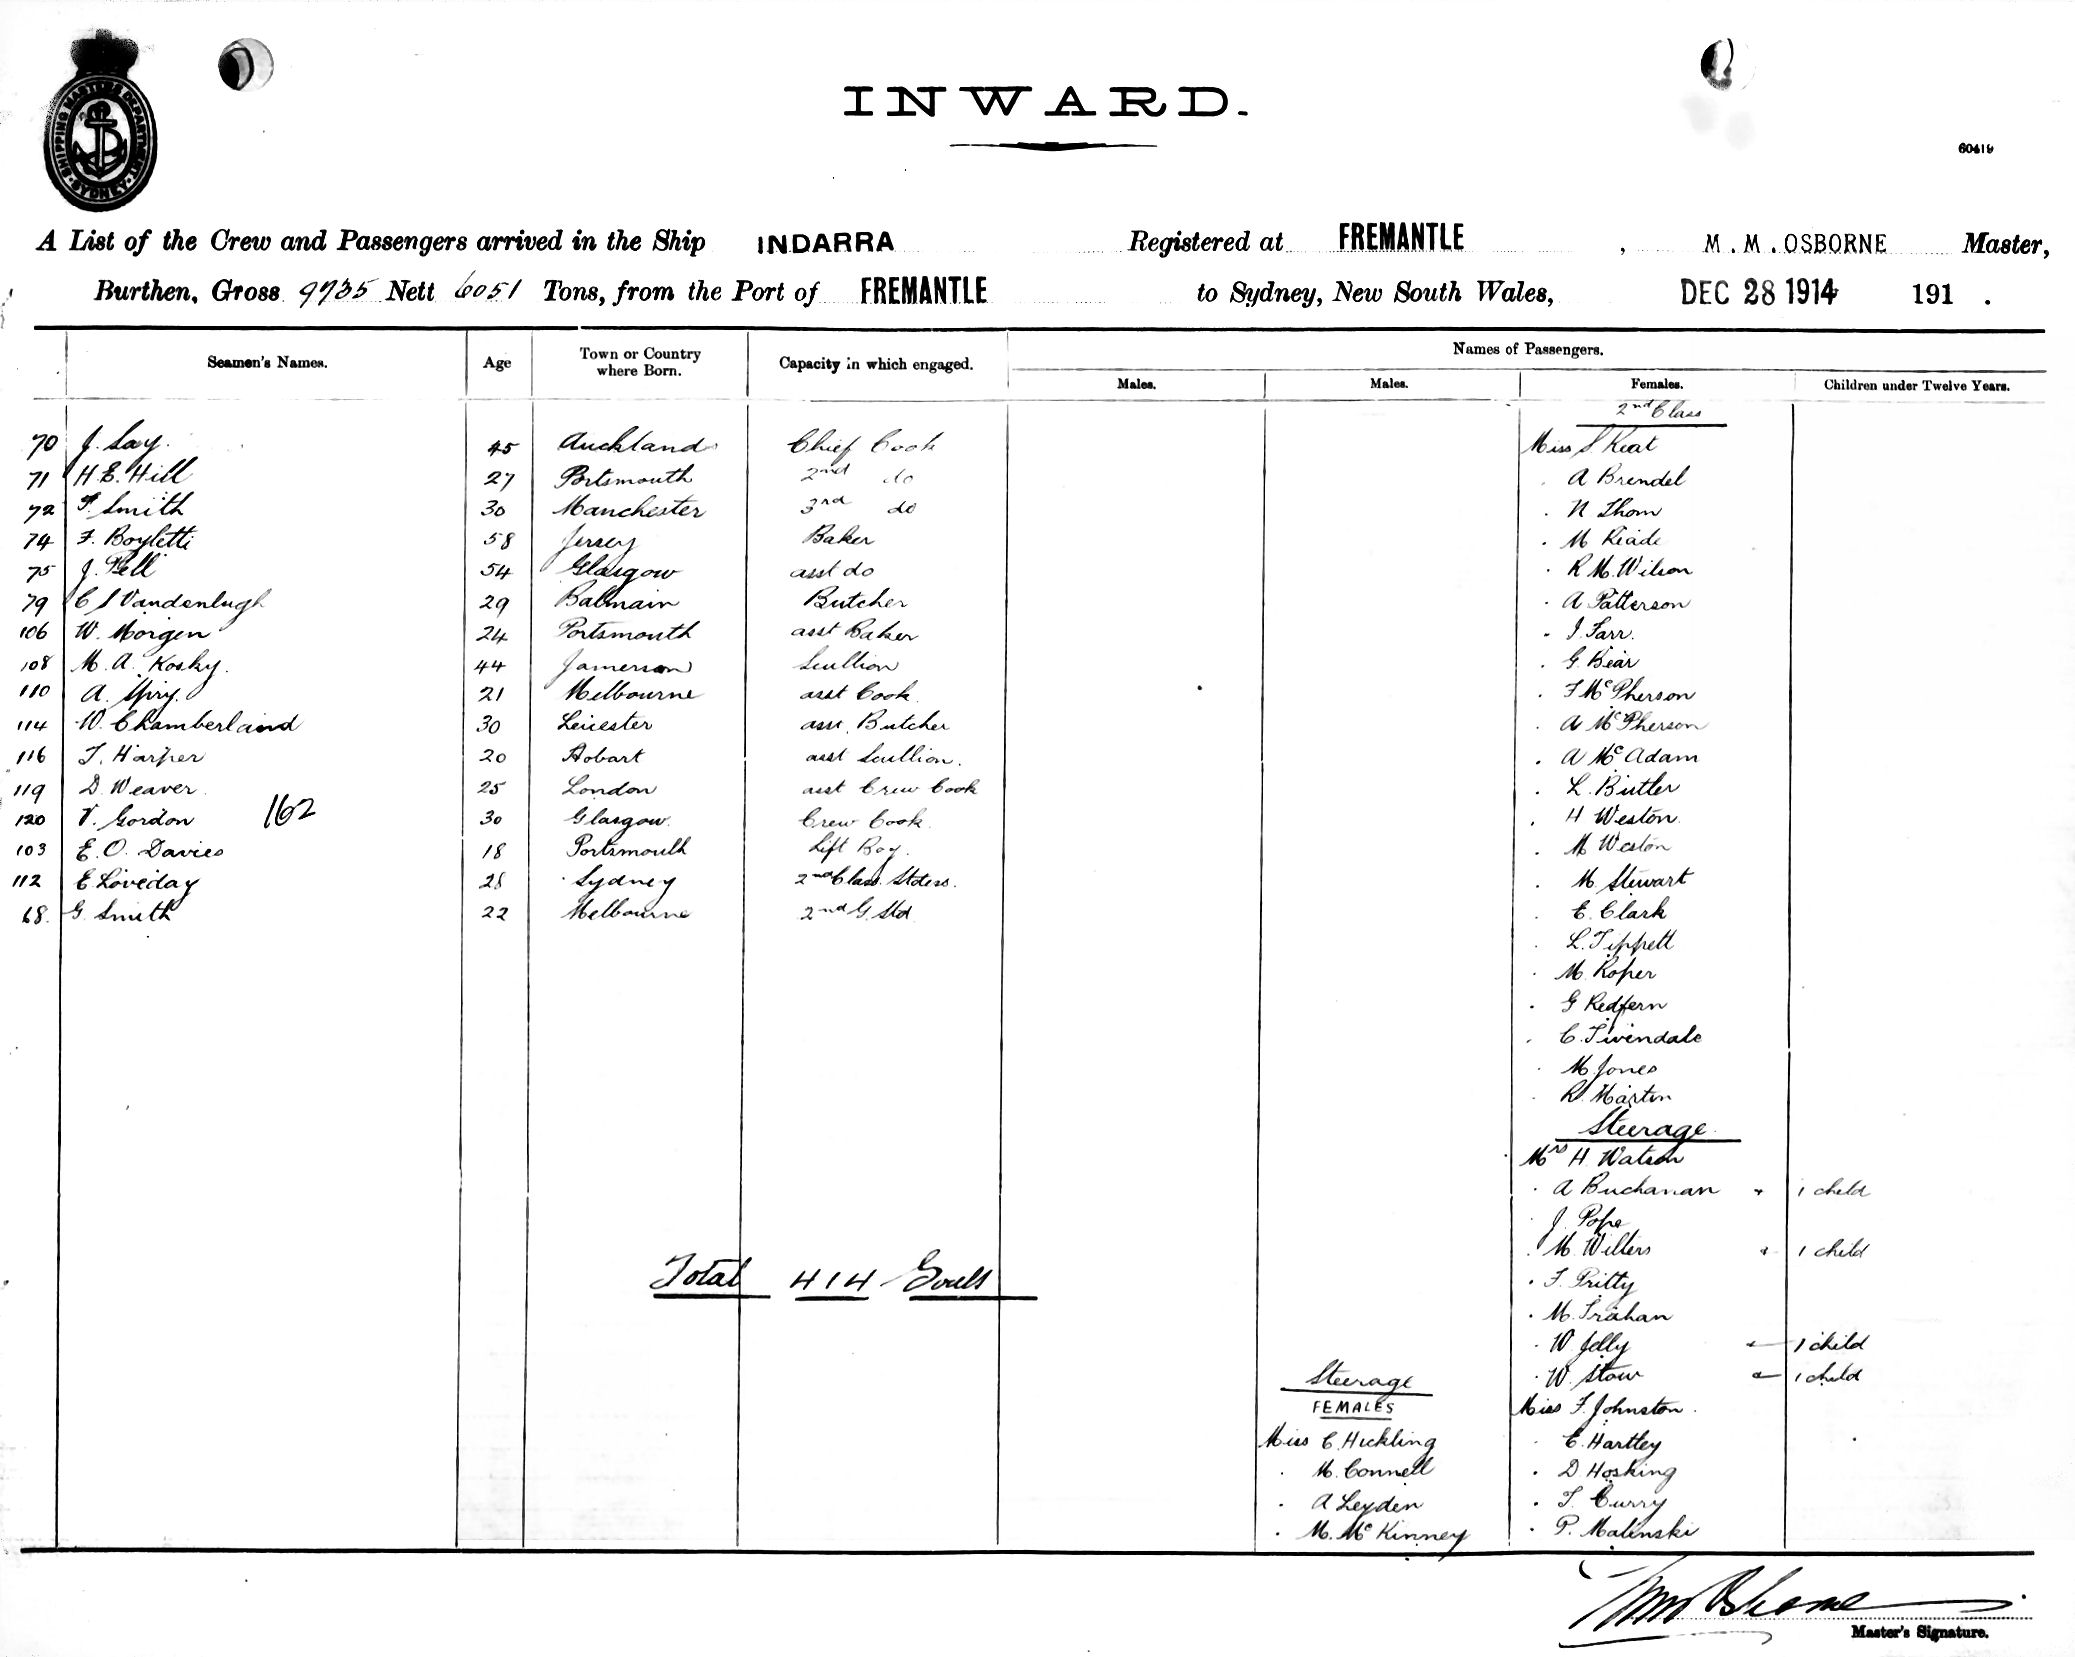 SHIPPING MASTER'S DEPARTMENT SYDNEY
INWARD.
60419
A List of the Crew and Passengers arrived in the Ship INDARRA Registered at FREMANTLE, M.M. OSBORNE Master,
Burthen, Gross 9735 Nett 6051 Tons, from the Port of FREMANTLE to Sydney, New South Wales, DEC 28 1914 191 .
Seamen's Names. Age Town or Country where Born. Capacity in which engaged. Names of Passengers.
Males. Males. Females. Children under Twelve Years.
70 J. Lay. 45 Auckland Chief Cook
71 H.E. Hill 27 Portsmouth 2nd do
72 T. Smith 30 Manchester 3rd do
74 F. Boyletti 58 Jersey Baker
75 J. Pell 54 Glasgow asst do
79 29 Balmain Butcher
106 W. Morgen 24 Portsmouth asst Baker
108 M. A. Kosky. 44 Scullion
110 A. Spry. 21 Melbourne asst Cook
114 W. Chamberlaind 30 Leicester asst. Butcher
116 T. Harper 20 Hobart asst Scullion.
119 D. Weaver 25 London asst Crew Cook
120 V. Gordon 162 30 Glasgow. Crew Cook.
103 E. O. Davies 18 Portsmouth Lift Boy.
112 E Loveday 28 Sydney 2nd Class Stdess.
68. G. Smith 22 Melbourne 2nd G. Std
Total 414 Souls
Steerage
FEMALES
Miss C. Hickling
. M. Connell
. A Leyden
. M. McKinney
2nd Class
Miss S. Keat
. A Brendel
. N Thom
. M Reade
. R M. Wilson
. A Patterson
. J. Farr.
. G. Bear
. F McPherson
. A McPherson
. A McAdam
. L. Butler
. H Weston
. M Weston
. M Stewart
. E. Clark
. L. Tippett
. M. Roper
. G Redfern
. C. Tivendale
. M. Jones
. R. Martin
Steerage
Mrs H. Watson
. A Buchanan + 1 child
. J. Pope
. M. Willers + 1 child
. F. Pritty
. M. Trahan
. W. Jelly + 1 child
. W. Stow + 1 child
Miss F. Johnston.
. E. Hartley
. D Hosking
. T. Curry
. P. Malinski
Master's Signature.